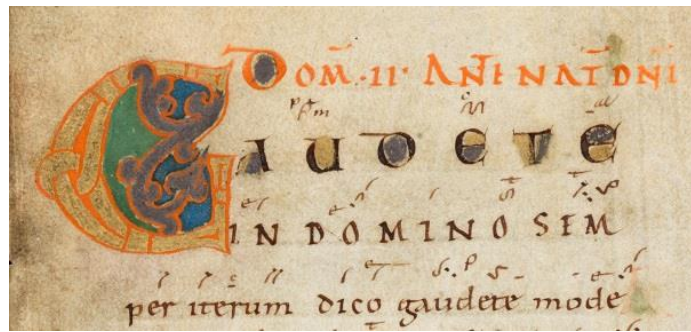 DOM̄ ·II· ANT̄E NAT̄ DNĪ
GAUDETE
IN DOMINO SEM
per iterum dico gaudete mode